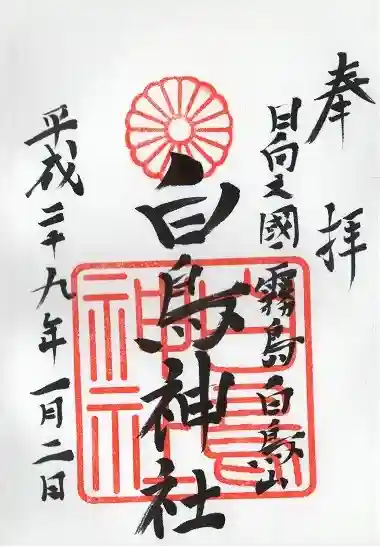 奉拝
日向之國霧島白鳥山
白鳥神社
白鳥神社
平成二十九年一月二日